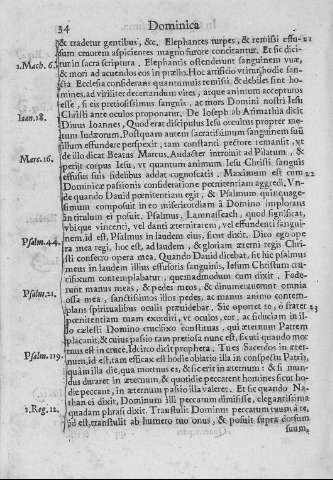 34 Dominica
& tradetur gentibus, &c. Elephantes turpes, & remissi effu- 21
sum cruorem aspicientes magno furore concitantur. Et sic dici-
1. Mach. 6. tur in sacra scriptura, Elephantis ostenderunt sanguinem vuæ,
& mori ad acuendos eos in prælio. Hoc artificio vtitur hodie san-
cta Ecclesia considerans quam nimis remissi, & debiles sint ho-
mines, ad viriliter decertandum vires, atque animum accepturos
esse, si eis pretiosissimus sanguis, ac mors Domini nostri Iesu
Christi ante oculos proponatur. De Ioseph ab Arimathia dicit
Ioan. 18. Diuus Ioannes, Quod erat discipulus Iesu occultus propter me-
tum Iudæorum. Postquam autem sacratissimum sanguinem suũ
illum effundere perspexit; tam constanti pectore remansit, vt
Marc. 16. de illo dicat Beatus Marcus, Audacter introiuit ad Pilatum, &
petijt corpus Iesu, vt quantum animum Iesu Christi sanguis
effusus suis fidelibus addat cognoscatis. Maximus est cum 22
Dominicæ passionis consideratione pœnitentiam aggredi, Vn-
de quando Dauid pœnitentiam egit, & Psalmum quinquage-
simum composuit in eo misericordiam à Domino implorans
in titulum ei posuit, Psalmus, Lamnasseach, quod significat,
vbique vincenti, vel danti æternitatem, vel effundenti sangui-
nem, id est, Psalmus in laudem eius, sicut dixit. Dico ego ope-
Psalm. 44. ra mea regi, hoc est, ad laudem, & gloriam æterni regis Chri-
sti consecro opera mea. Quando Dauid dicebat, sit hic psalmus
meus in laudem illius effusionis sanguinis, Iesum Christum cru-
cifixum contemplabatur, quemadmodum cum dixit. Fode-
Psalm. 21. runt manus meas, & pedes meos, & dinumerauerunt omnia
ossa mea, sanctissimos illos pedes, ac manus animo contem-
plans spiritualibus oculis præuidebat. Sic oportet, o frater 23
pœnitentiam tuam exordiri, vt oculos, cor, ac fiduciam in il-
lo cælesti Domino crucifixo constituas, qui æternum Patrem
placauit, & cuius passio tam pretiosa nunc est, sicuti quando mor
Psalm. 119. tuus est in cruce. Idcirco dixit propheta, Tu es Sacerdos in æter-
num, id est, tam efficax est hodie oblatio illa in conspectu Patris,
quàm illa die, qua mortuus es, & sic erit in æternum: & si mun-
dus duraret in æternum, & quotidie peccarent homines sicut ho-
die peccant, in æternum passio illa valeret. Et sic quando Na-
than ei dixit, Dominum illi peccatum dimisisse, elegantissima
1. Reg. 12. quadam phrasi dixit. Transtulit Dominus peccatum tuum à te,
id est, transtulit ab humero tuo onus, & posuit supra dorsum
suum,